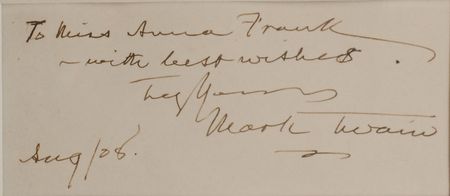 To Miss Anna Frank
- with best wishes.
Truly Yours
Mark Twain
Aug/08.